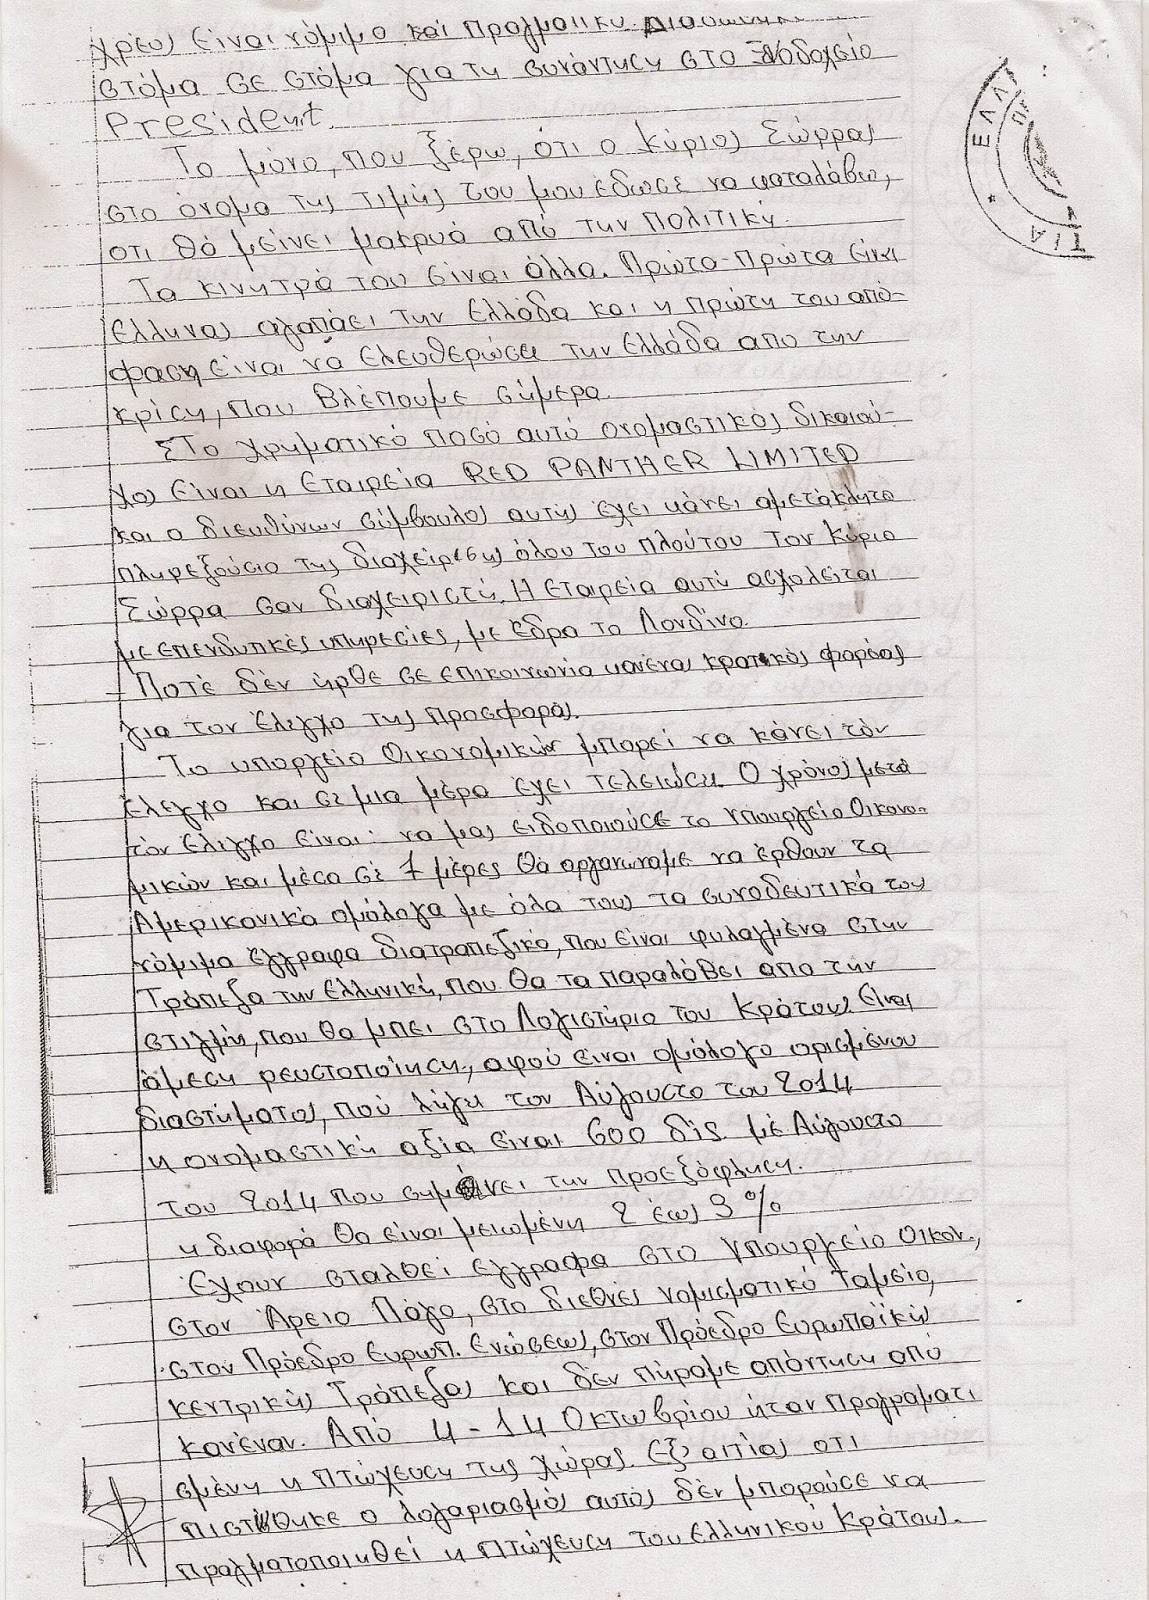 χρέος είναι νόμιμο και πραγματικό. Διαδώθηκε
στόμα σε στόμα για τη συνάντηση στο Ξενοδοχείο
President.
Το μόνο, που ξέρω, ότι ο κύριος Σώρρας
στο όνομα της τιμής του μου έδωσε να καταλάβω,
οτι θά μείνει μακρυά από την πολιτική.
Τα κινητρά του είναι άλλα. Πρώτα-Πρώτα είναι
Έλληνας αγαπάει την Ελλάδα και η πρώτη του από-
φαση είναι να ελευθερώσει την Ελλάδα απο την
κρίση, που βλέπουμε σήμερα.
Στο χρηματικό ποσό αυτό ονομαστικός δικαιού-
χος είναι η Εταιρεία RED PANTHER LIMITED
και ο διευθύνων σύμβουλος αυτής έχει κάνει αμετάκλητο
πληρεξούσιο της διαχείρισης όλου του πλούτου τον Κύριο
Σώρρα σαν διαχειριστή. Η εταιρεία αυτή ασχολείται
με επενδυτικές υπηρεσίες, με έδρα το Λονδίνο.
- Ποτέ δέν ήρθε σε επικοινωνία κανένας κρατικός φορέας
για τον έλεγχο της προσφοράς.
Το υπουργείο Οικονομικών μπορεί να κάνει τόν
έλεγχο και σε μια μέρα έχει τελειώσει. Ο χρόνος μετά
τόν έλεγχο είναι: να μας ειδοποιούσε το Υπουργείο Οικονο-
μικών και μέσα σέ 7 μέρες θά οργανώναμε να έρθουν τα
Αμερικανικά ομόλογα με όλα τους τα συνοδευτικά του
νόμιμα έγγραφα διατραπεζικό, που είναι φυλαγμένα στην
Τράπεζα την Ελληνική, που θα τα παραλάβει απο την
στιγμή, που θα μπει στο Λογιστήριο του Κράτους. Είναι
άμεση ρευστοποίηση, αφού είναι ομόλογο ορισμένου
διαστήματος, πού λήγει τον Αύγουστο του 2014
η ονομαστική αξία είναι 600 δίς. μέ Αύγουστο
του 2014 που σημαίνει την προεξόφληση.
η διαφορά θα είναι μειωμένη 2 έως 3%
Έχουν σταλθεί έγγραφα στο Υπουργείο Οικον.,
στον Άρειο Πάγο, στο διεθνές νομισματικό ταμείο,
στον Πρόεδρο Ευρωπ. Ενώσεως, στον Πρόεδρο Ευρωπαϊκής
κεντρικής Τράπεζας και δέν πήραμε απάντηση από
κανέναν. Από 4-14 Οκτωβρίου ήταν προγραματι
σμένη η πτώχευση της χώρας. Εξ αιτίας οτι
πιστώθηκε ο λογαριασμός αυτός δέν μπορούσε να
πραγματοποιηθεί η πτώχευση του Ελληνικού Κράτους.